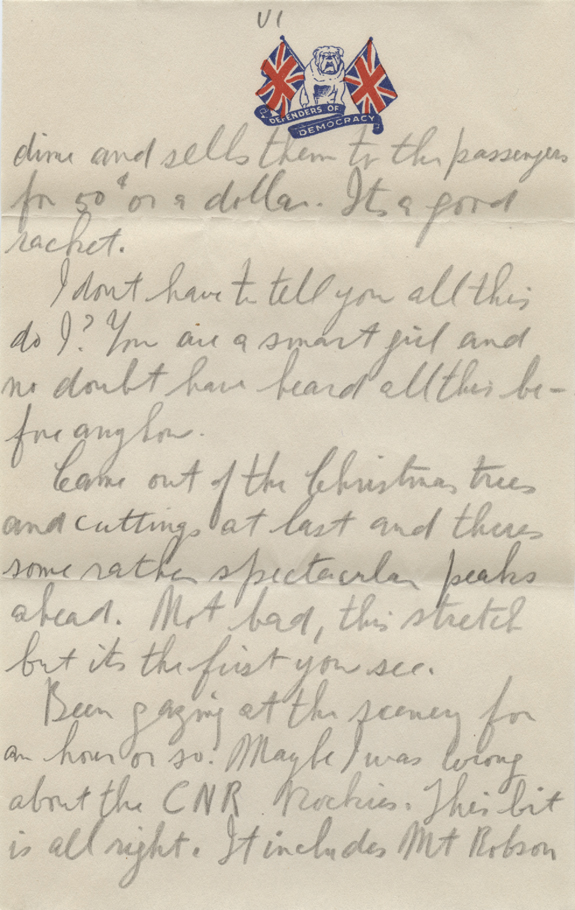 VI
DEFENDERS OF
DEMOCRACY
dime and sells them to the passengers
for 50¢ or a dollar. Its a good
racket.
I dont have to tell you all this
do I? You are a smart girl and
no doubt have heard all this be-
fore anyhow.
Came out of the Christmas trees
and cuttings at last and theres
some rather spectacular peaks
ahead. Not bad, this stretch
but its the first you see.
Been gazing at the scenery for
an hour or so. Maybe I was wrong
about the CNR Rockies. This bit
is all right. It includes Mt Robson